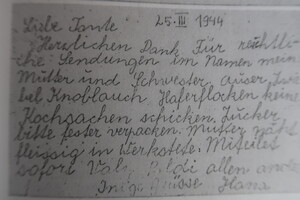 Liebe Tante 25.III 1944
Herzlichen Dank Für reichtli-
che Sendungen im Namen mein
Mutter und Schwester. Auser
bel Knoblauch Haferflocken keine
Kochsachen schicken. Zucker
bitte fester verpacken. Mutter näht
fleissig in Werkstelte. Mitteilet
sofort allen
Grüsse Hans